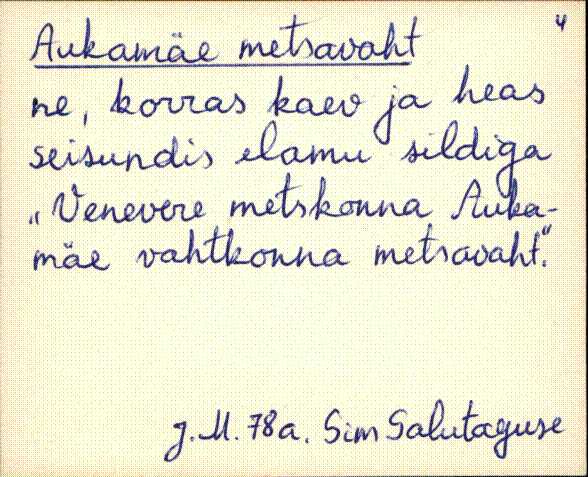 4
Aukamäe metsavaht
ne, korras kaev ja heas
seisundis elamu sildiga
„Venevere metskonna Auka-
mäe vahtkonna metsavaht".
J. M. 78a. Sim Salutaguse